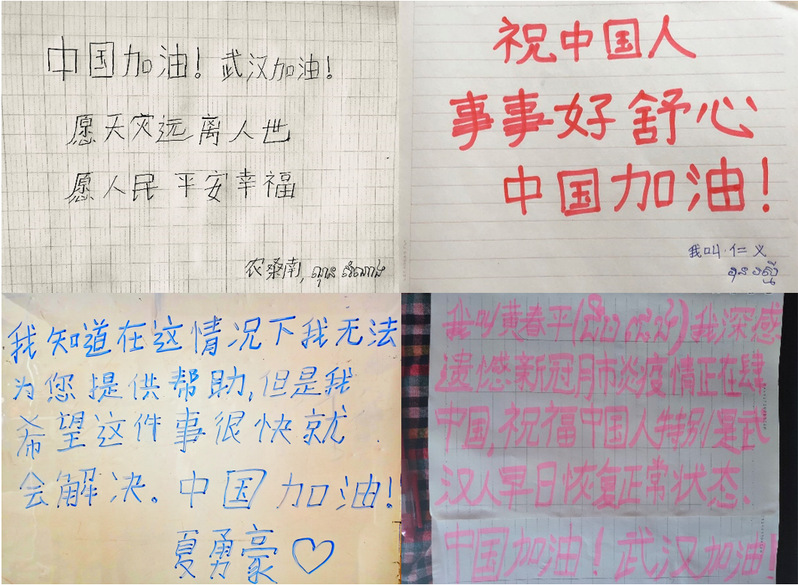 中国加油! 武汉加油!
愿天灾远离人世
愿人民平安幸福
农桑南,
祝中国人
事事好舒心
中国加油!
我叫·仁义
我知道在这情况下我无法
为您提供帮助,但是我
希望这件事很快就
会解决。中国加油!
夏勇豪♡
我叫黄春平( ) 我深感
遗憾新冠月市炎疫情正在肆
中国,祝福中国人特别是武
汉人早日恢复正常状态、
中国加油! 武汉加油!